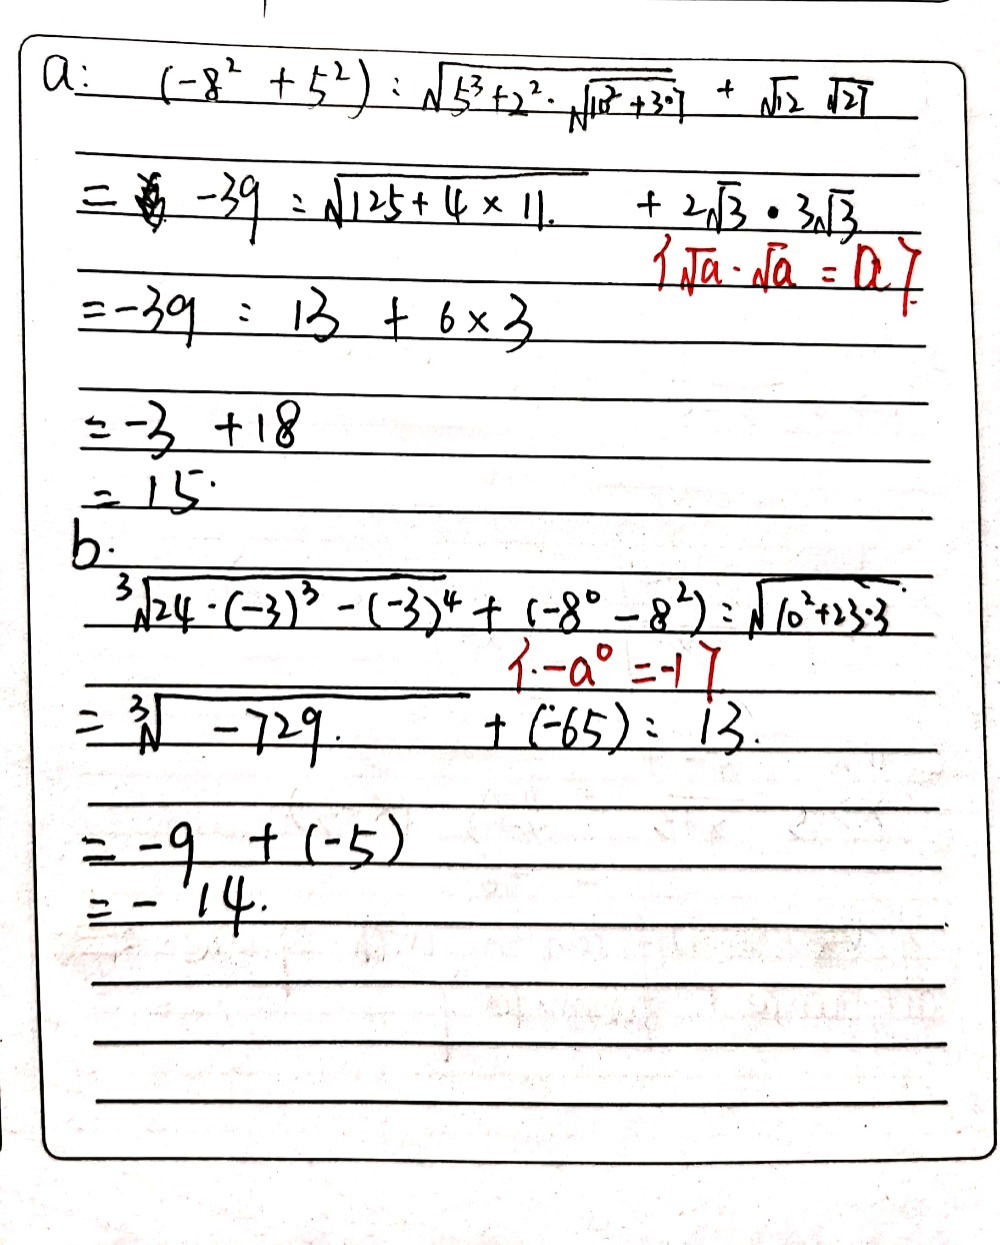 a: (-8² + 5²) : √(5³+2²·√(10²+3·7)) + √12 √27
= -39 : √(125+4×11.) + 2√3 · 3√3
{√a·√a = a}
=-39 : 13 + 6×3
=-3 +18
= 15.
b.
³√(24·(-3)³-(-3)⁴) + (-8⁰-8²) : √(10²+23·3)
{-a⁰ =-1}
= ³√(-729.) + (-65) : 13.
= -9 +(-5)
= - 14.